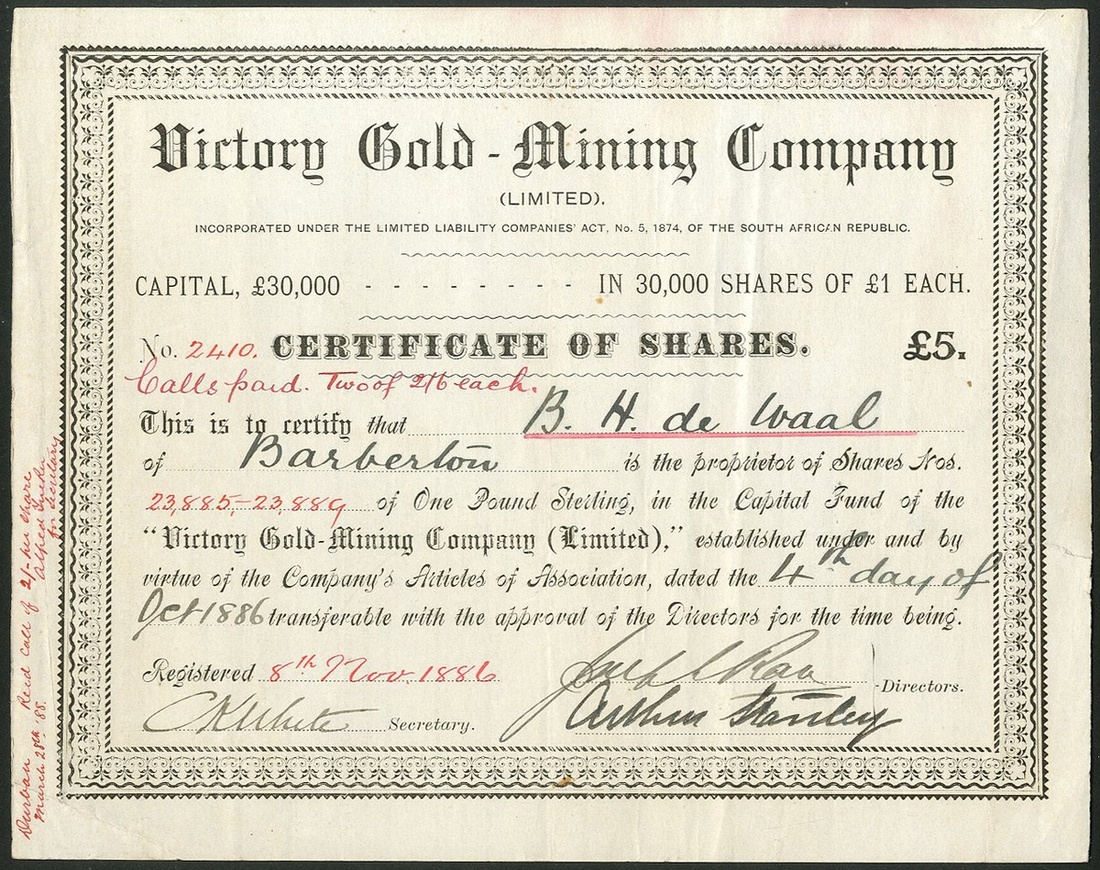 Victory Gold-Mining Company
(LIMITED).
INCORPORATED UNDER THE LIMITED LIABILITY COMPANIES' ACT, No. 5, 1874, OF THE SOUTH AFRICAN REPUBLIC.
CAPITAL, £30,000 - - - - - - - - - IN 30,000 SHARES OF £1 EACH.
No. 2410. CERTIFICATE OF SHARES. £5.
Calls paid. Two of 2/6 each.
This is to certify that B. H. de Waal
of Barberton is the proprietor of Shares Nos.
23,885-23,889 of One Pound Sterling, in the Capital Fund of the
"Victory Gold-Mining Company (Limited)," established under and by
virtue of the Company's Articles of Association, dated the 4th day of
Oct 1886 transferable with the approval of the Directors for the time being.
Registered 8th Nov. 1886
Directors.
C K White Secretary. Arthur Stanley
Durban Recd Call of 2/- per Share
March 28th '88. Alfred
for Secretary